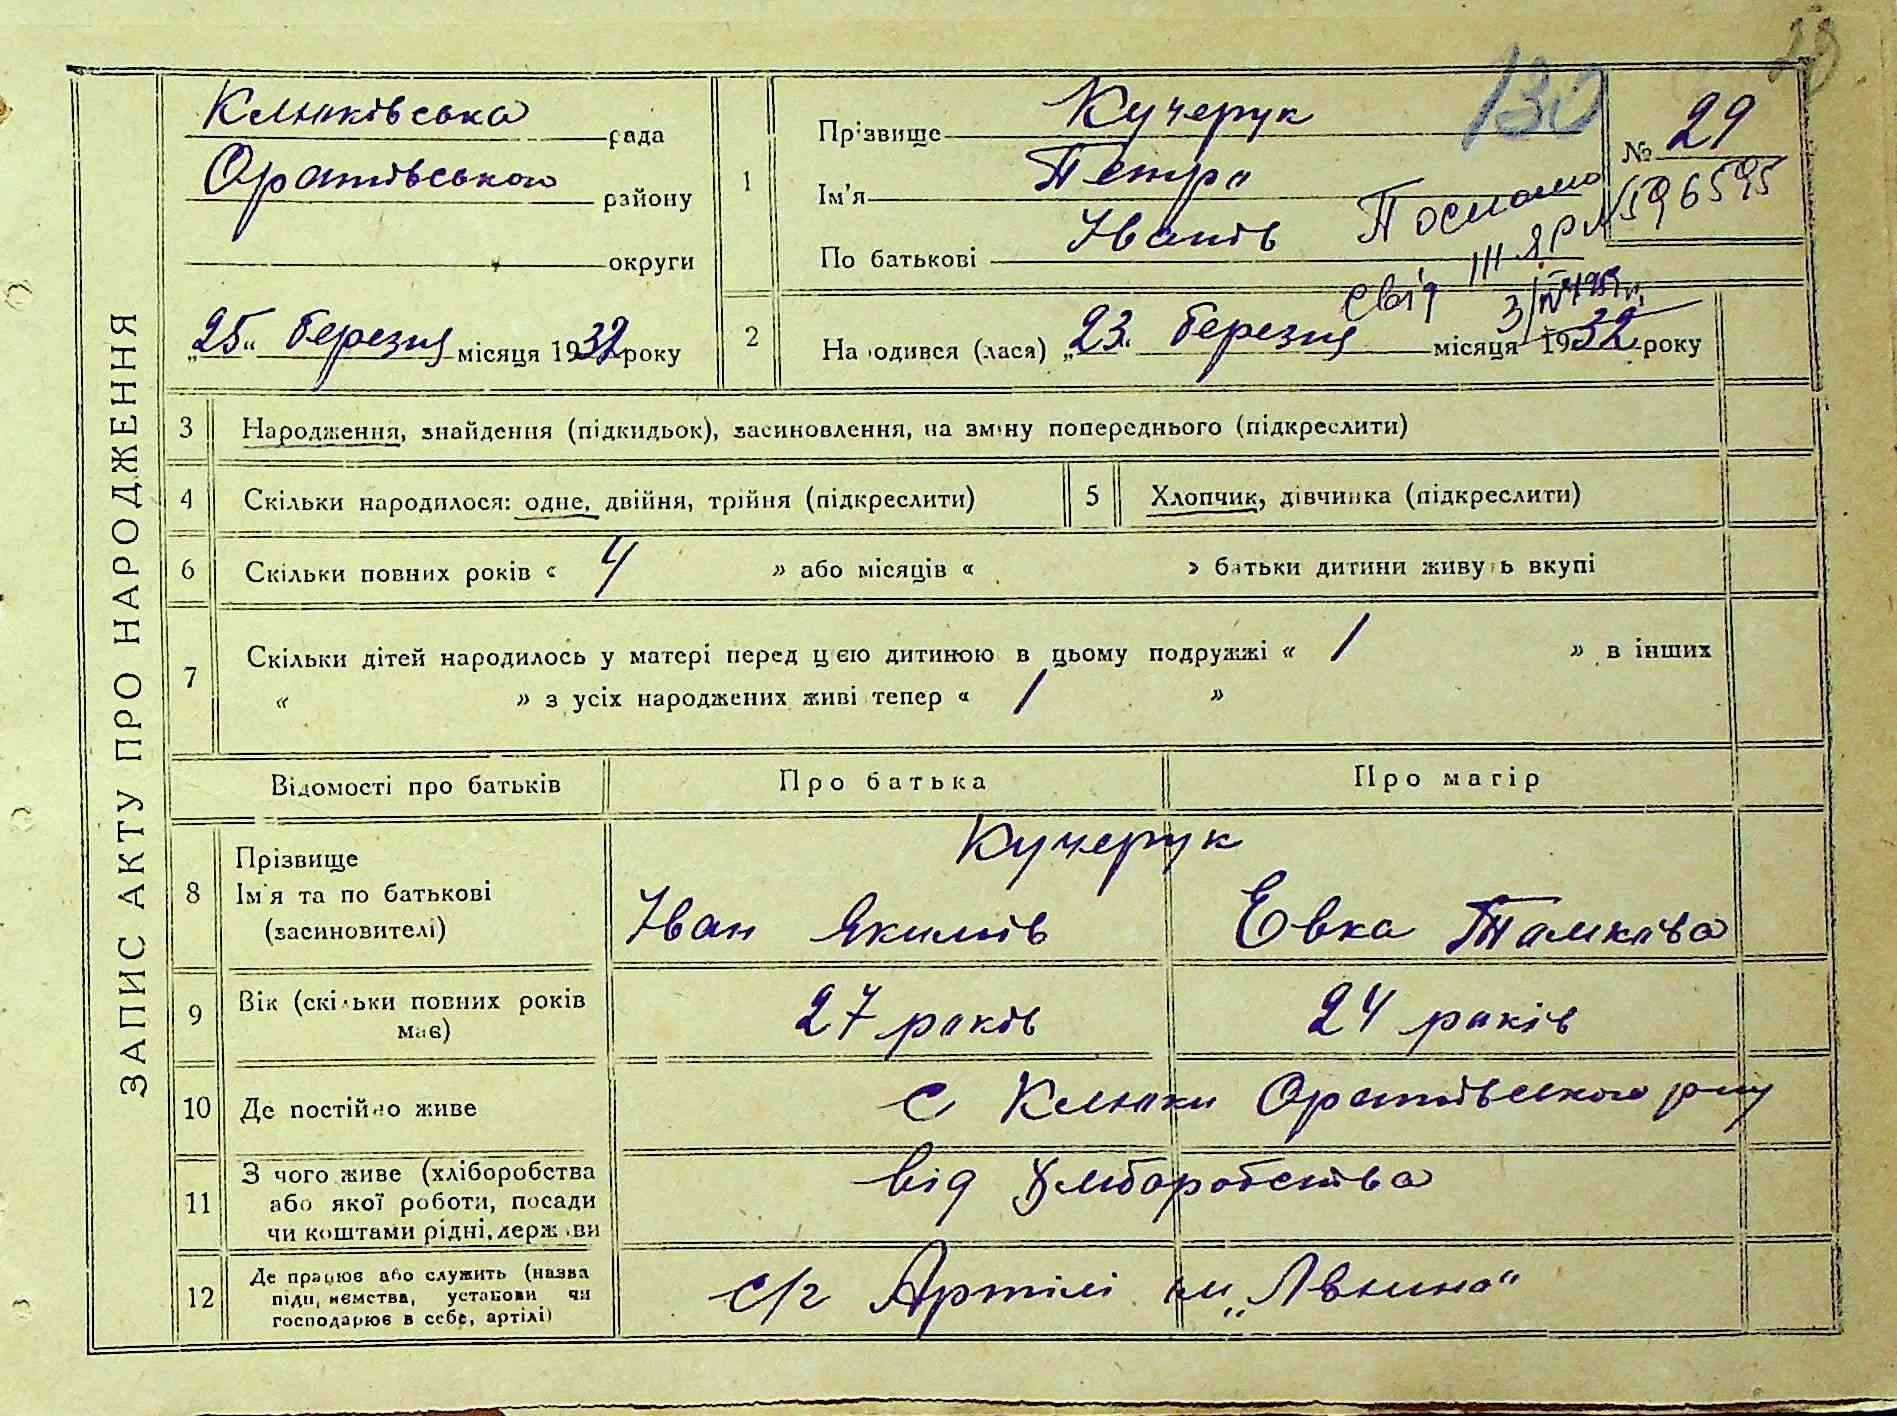 28
ЗАПИС АКТУ ПРО НАРОДЖЕННЯ
Клюківська рада
Оратівського району
округи
„25“ березня місяця 1932 року
1
Прізвище Кучерук
130
Ім'я Петро
По батькові Іванів
№ 29
Послано
ЯР №596595
свід III
3/IV
2
Народився (лася) „23“ березня місяця 1932 року
3 Народження, знайдення (підкидьок), засиновлення, на зміну попереднього (підкреслити)
4 Скільки народилося: одне, двійня, трійня (підкреслити)
5 Хлопчик, дівчинка (підкреслити)
6 Скільки повних років « 4 » або місяців « » батьки дитини живуть вкупі
7 Скільки дітей народилось у матері перед цією дитиною в цьому подружжі « 1 » в інших
« » з усіх народжених живі тепер « 1 »
Відомості про батьків Про батька Про матір
8 Прізвище
Ім'я та по батькові
(засиновителі)
Кучерук
Іван Якимів Евка
9 Вік (скільки повних років
має)
27 років 24 років
10 Де постійно живе с Клюки Оратівського р-ну
11 З чого живе (хліборобства
або якої роботи, посади
чи коштами рідні, держави
від Хліборобства
12 Де працює або служить (назва
підприємства, установи чи
господарює в себе, артілі)
с/г Артілі